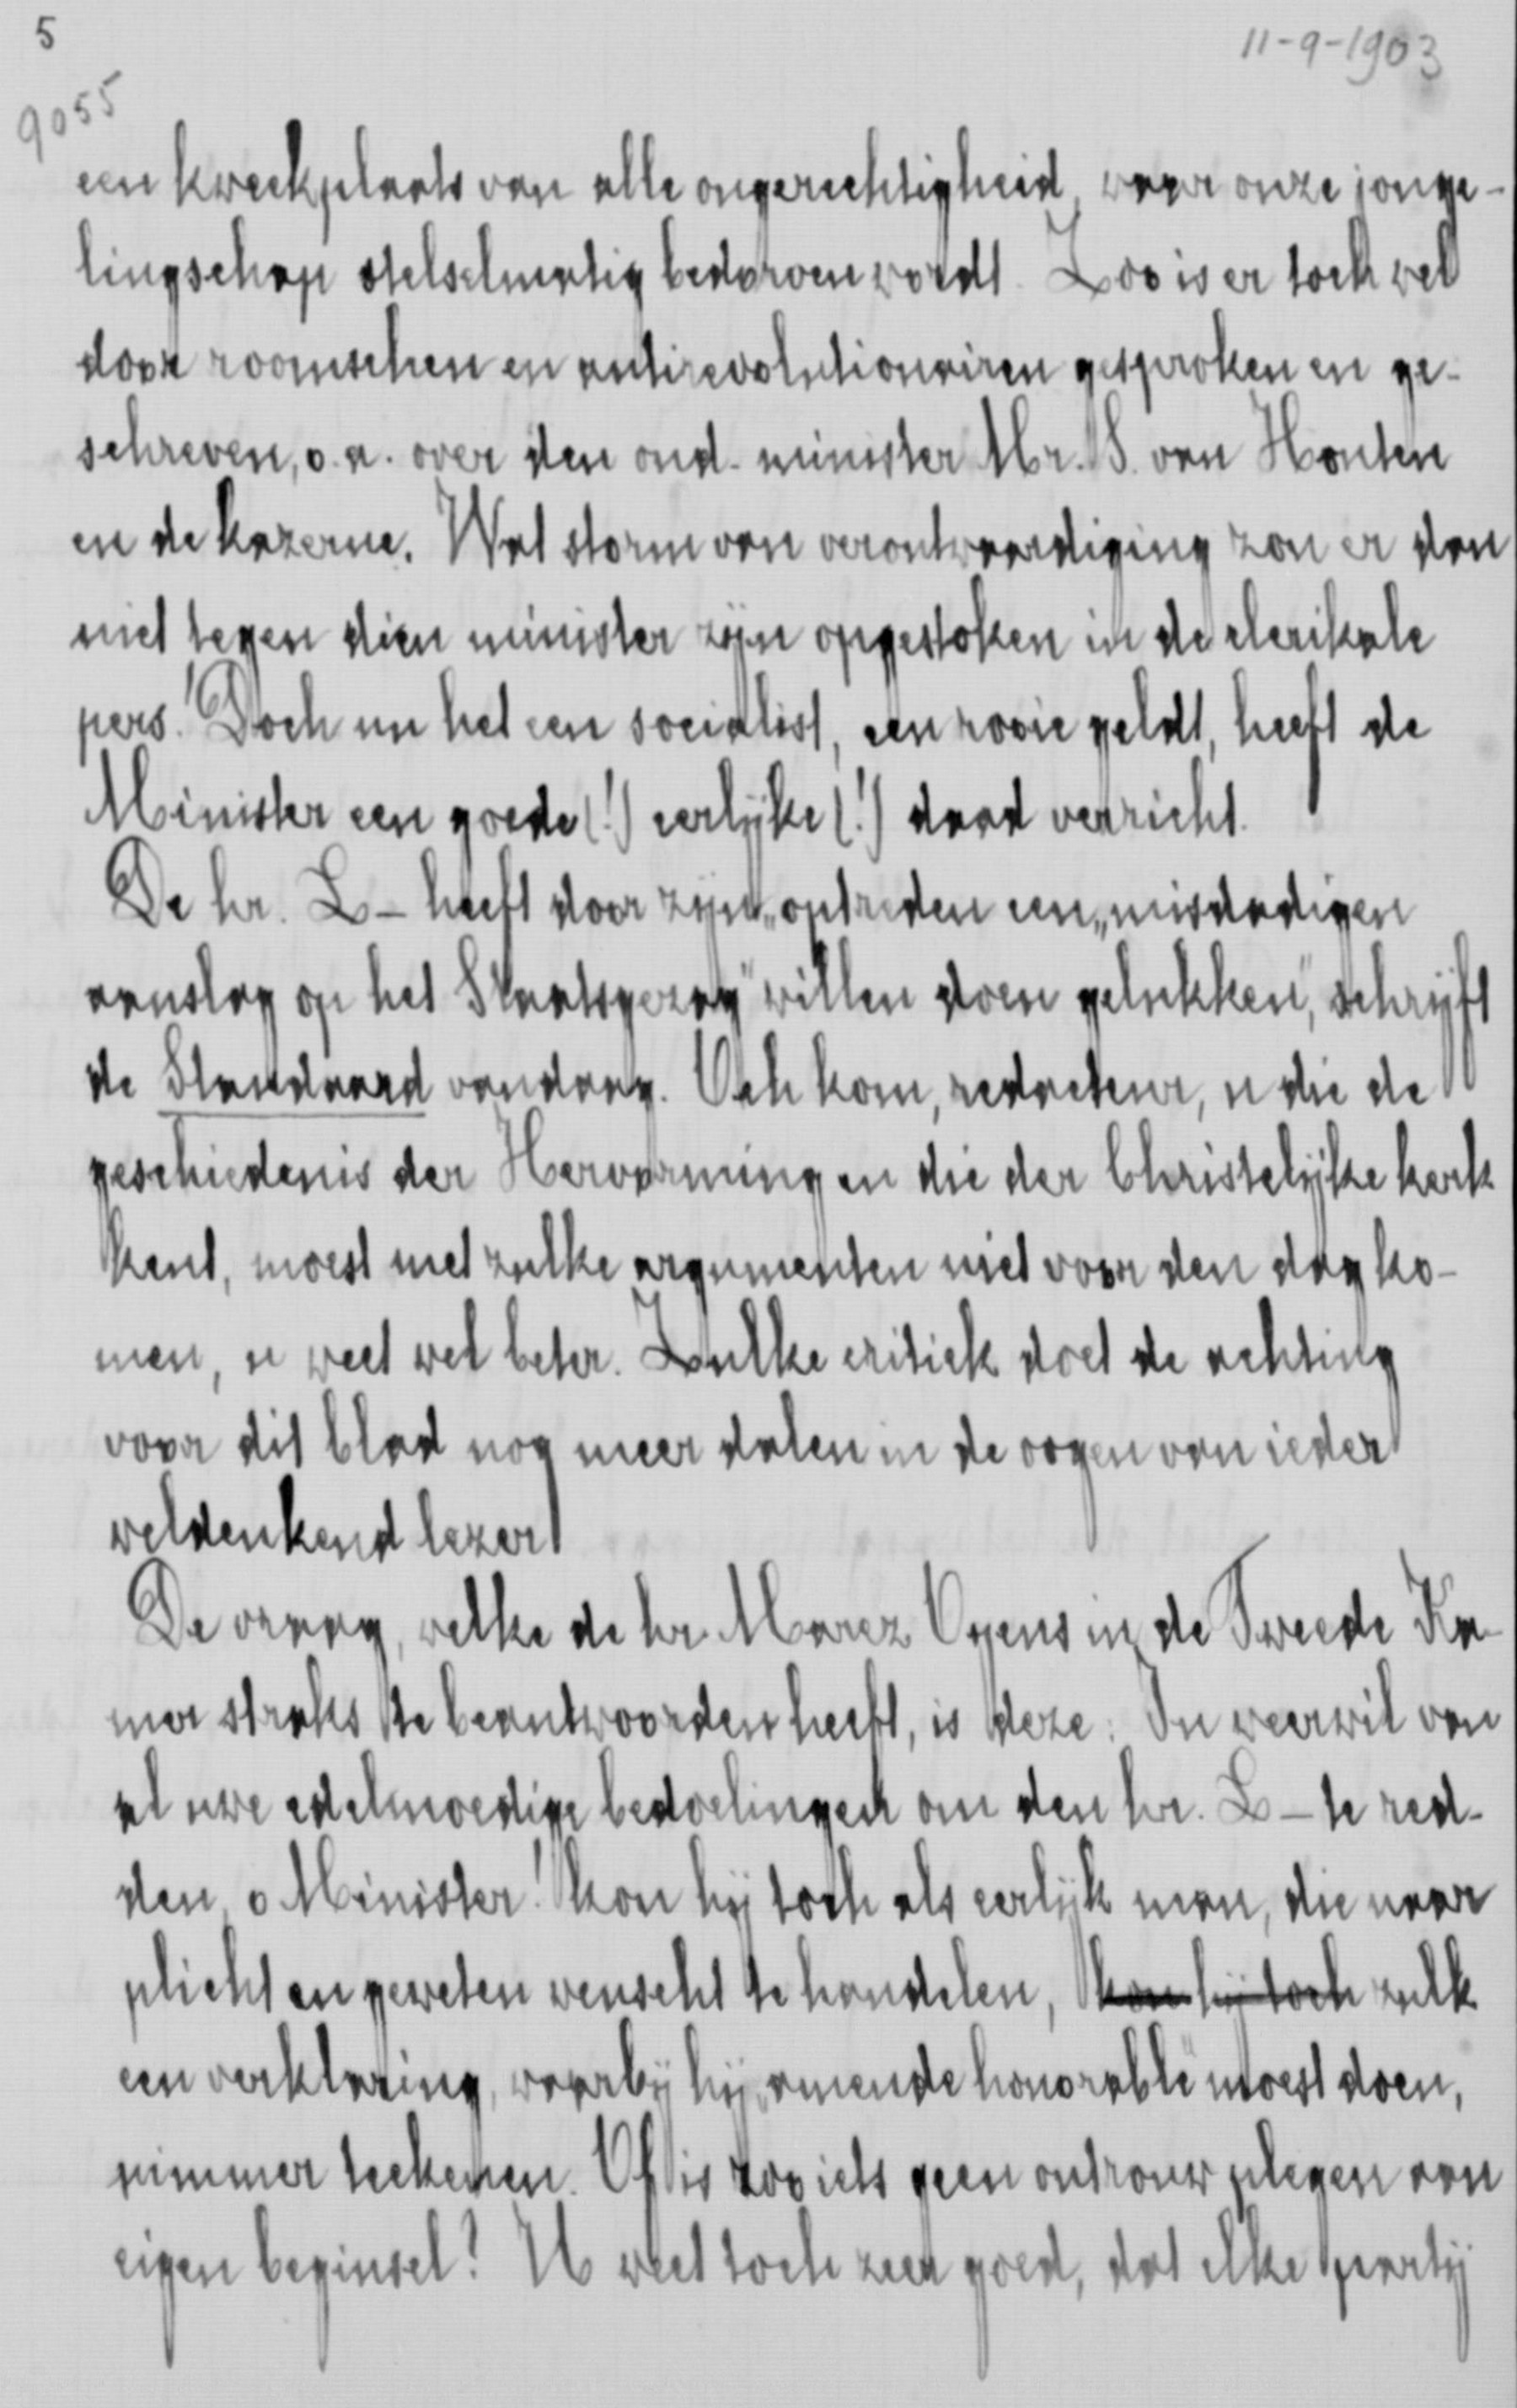 5
11-9-1903
9055
een kweekplaats van alle ongerechtigheid, waar onze jonge-
lingschap stelselmatig bedorven wordt. Zoo is er toch wel
door roomschen en antirevolutionairen gesproken en ge-
schreven, o.a. over den oud-minister Mr. S. van Houten
en de kazerne. Wat storm van verontwaardiging zou er dan
niet tegen dien minister zijn opgestoken in de clerikale
pers! Doch nu het een socialist, een rooie geldt, heeft de
Minister een goede (!) eerlijke (!) daad verricht.
De hr. L- heeft door zijn „optreden een „misdadigen
aanslag op het Staatsgezag" willen doen gelukken", schrijft
de Standaard vandaag. Och kom, redacteur, u die de
geschiedenis der Hervorming en die der Christelijke kerk
kent, moest met zulke argumenten niet voor den dag ko-
men, u weet wel beter. Zulke critiek doet de achting
voor dit blad nog meer dalen in de oogen van ieder
weldenkend lezer
De vraag, welke de hr. Marez Oyens in de Tweede Ka-
mer straks te beantwoorden heeft, is deze: In weerwil van
al uwe edelmoedige bedoelingen om den hr. L- te red-
den, o Minister! kon hij toch als eerlijk man, die naar
plicht en geweten wenscht te handelen, kon hij toch zulk
een verklaring, waarbij hij „amende honorable" moest doen,
nimmer teekenen. Of is zoo iets geen ontrouw plegen aan
eigen beginsel? U weet toch zeer goed, dat elke partij